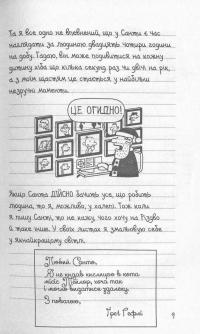 Та я все одно не впевнений, що у Санти є час
наглядати за людиною двадцять чотири години
на добу. Гадаю, він може подивитися на кожну
дитину хіба що кілька секунд раз чи двічі на рік,
а з моїм щастям це стається у найбільш
незручні моменти.
ЦЕ ОГИДНО!
Якщо Санта ДІЙСНО бачить усе, що робить
людина, то я, можливо, у халепі. Тож коли
я пишу Санті, то не кажу, чого хочу на Різдво
й таке інше. У своїх листах я змальовую себе
у якнайкращому світлі.
Любий Санто,
Я не кидав яблуко в кота
місіс Тейлор, хоча так
і могло видатися здалеку.
З повагою,
Ґреґ Гефлі
9